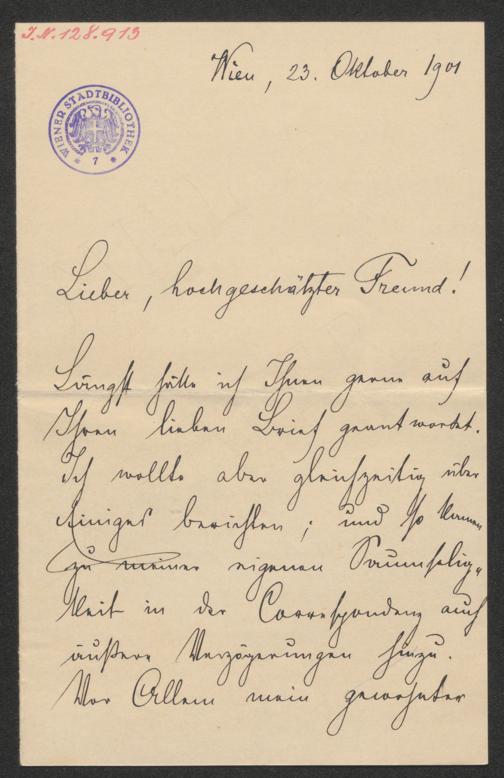 I.N. 128.913
Wien, 23. Oktober 1901
WIENER STADTBIBLIOTHEK
* 7 *
Lieber, hochgeschätzter Freund!
Längst hätte ich Ihnen gerne auf
Ihren lieben Brief geantwortet.
Ich wollte aber gleichzeitig über
Einiges berichten; und so kamen
zu meiner eigenen Saumselig-
keit in der Correspondenz auch
äußere Verzögerungen hinzu.
Vor Allem mein gewohnter